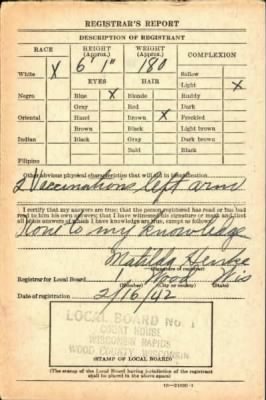 REGISTRAR'S REPORT
DESCRIPTION OF REGISTRANT
RACE HEIGHT (Approx.) WEIGHT (Approx.) COMPLEXION
6' 1" 180
White X
Sallow
EYES HAIR
Light X
Negro Blue X Blonde Ruddy
Gray Red Dark
Oriental Hazel Brown X Freckled
Brown Black Light brown
Indian Black Gray Dark brown
Bald Black
Filipino
Other obvious physical characteristics that will aid in identification
2 Vaccinations left arm
I certify that my answers are true; that the person registered has read or has had read to him his own answers; that I have witnessed his signature or mark and that all of his answers of which I have knowledge are true, except as follows:
None to my knowledge
Matilda
(Signature of registrar)
Registrar for Local Board 1 Wood Wis
(Number) (City or county) (State)
Date of registration 2/16/42
LOCAL BOARD No. 1
COURT HOUSE
WISCONSIN RAPIDS
WOOD COUNTY, WISCONSIN
(STAMP OF LOCAL BOARD)
(The stamp of the Local Board having jurisdiction of the registrant shall be placed in the above space)